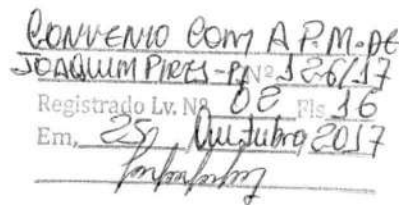 CONVENIO COM A P.M. DE
JOAQUIM PIRES-PI Nº 126/17
Registrado Lv. Nº 02 Fls 16
Em, 25, Outubro 2017